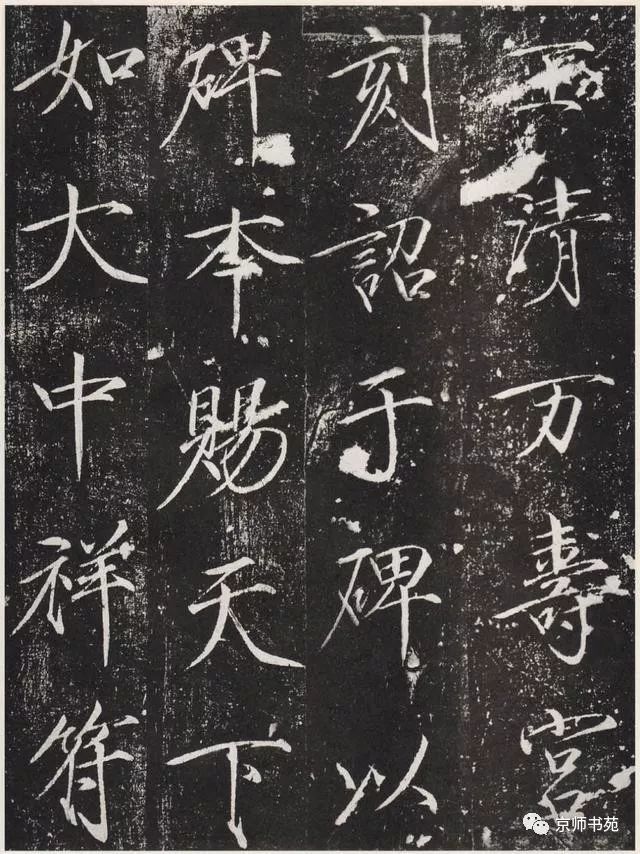 玉清万壽宮
刻詔于碑以
碑本賜天下
如大中祥符
京师书苑